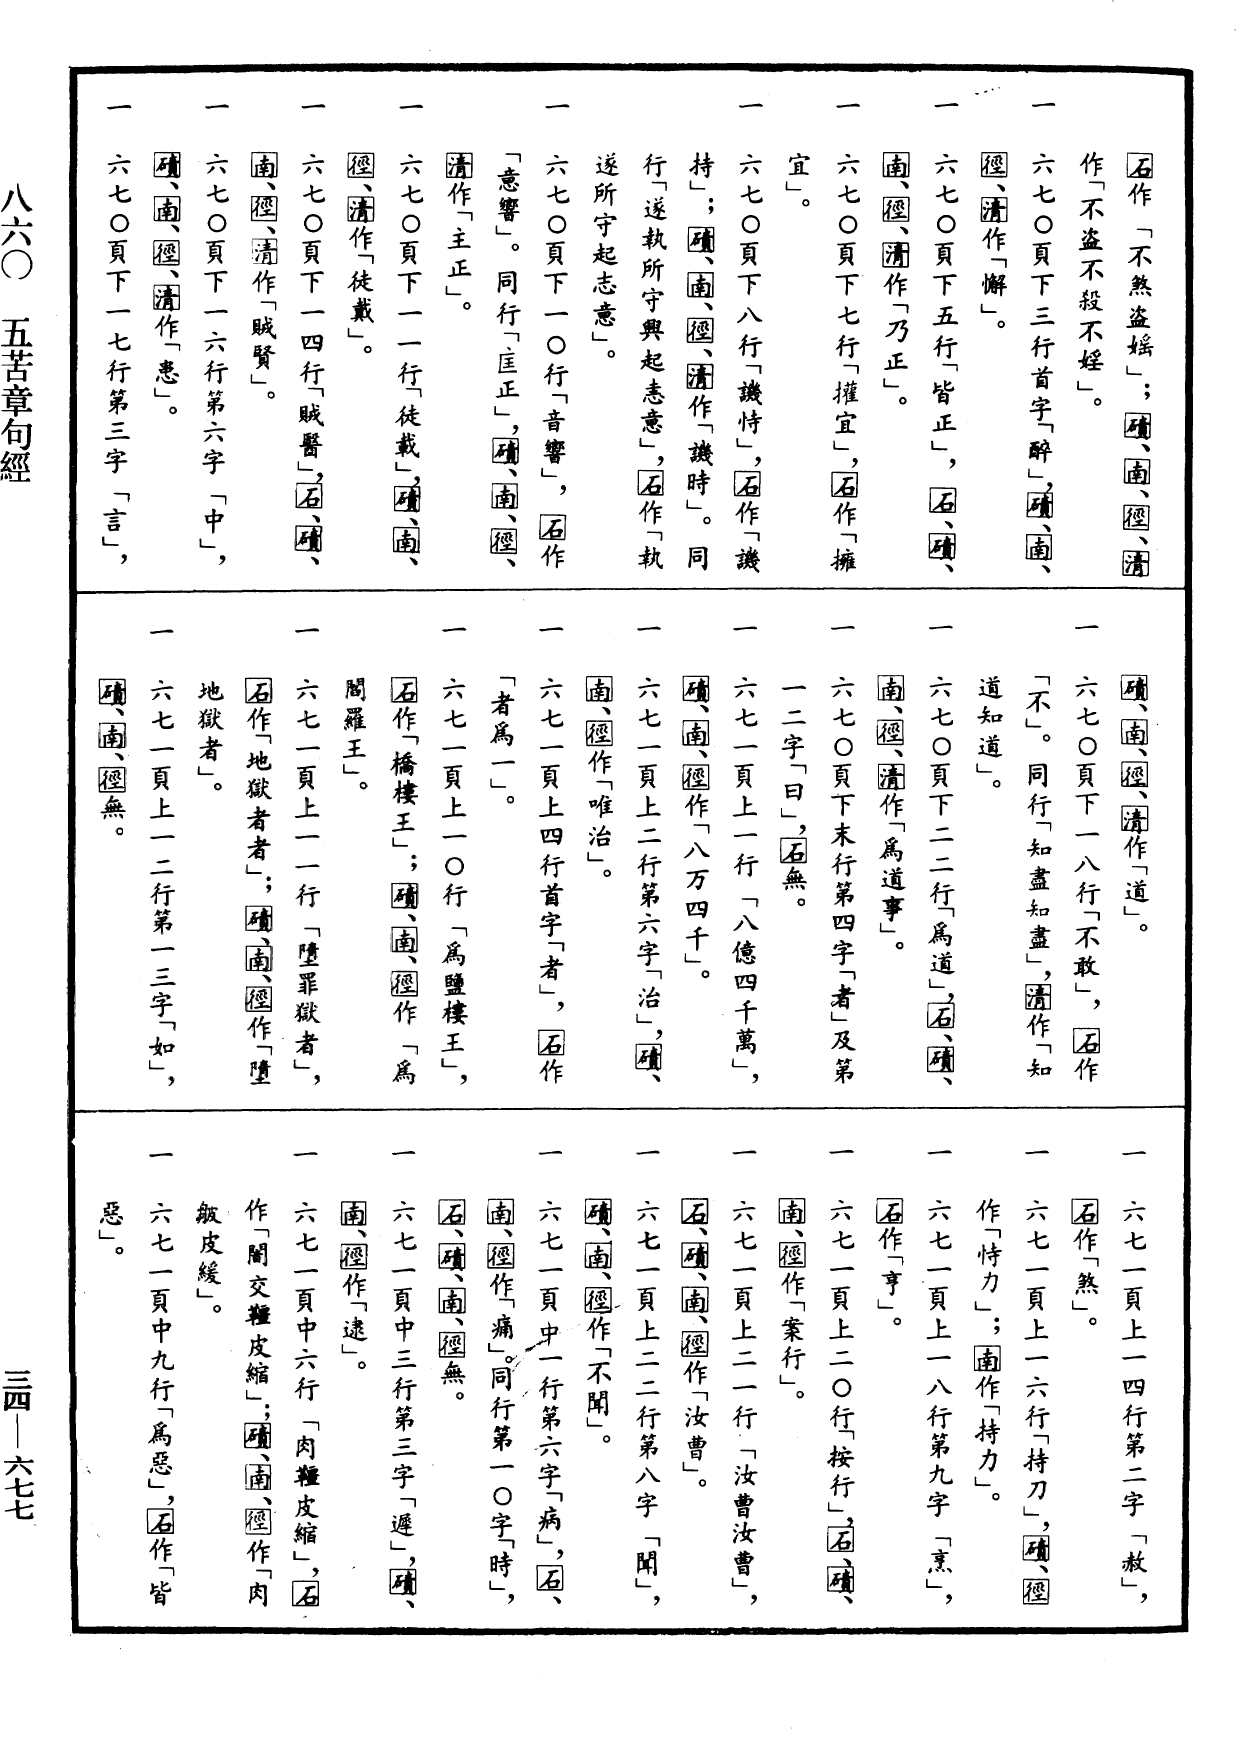 石作「不煞盗婬」；磧、南、徑、清
作「不盗不殺不婬」。
一 六七〇頁下三行首字「醉」，磧、南、
徑、清作「懈」。
一 六七〇頁下五行「皆正」，石、磧、
南、徑、清作「乃正」。
一 六七〇頁下七行「擢宜」，石作「擁
宜」。
一 六七〇頁下八行「譏恃」，石作「譏
持」；磧、南、徑、清作「譏時」。同
行「遂執所守興起恚意」，石作「執
遂所守起志意」。
一 六七〇頁下一〇行「音響」，石作
「意響」。同行「匡正」，磧、南、徑、
清作「主正」。
一 六七〇頁下一一行「徒載」，磧、南、
徑、清作「徒戴」。
一 六七〇頁下一四行「賊醫」，石、磧、
南、徑、清作「賊賢」。
一 六七〇頁下一六行第六字「中」，
磧、南、徑、清作「患」。
一 六七〇頁下一七行第三字「言」，
磧、南、徑、清作「道」。
一 六七〇頁下一八行「不敢」，石作
「不」。同行「知盡知盡」，清作「知
道知道」。
一 六七〇頁下二二行「爲道」，石、磧、
南、徑、清作「爲道事」。
一 六七〇頁下末行第四字「者」及第
一二字「曰」，石無。
一 六七一頁上一行「八億四千萬」，
磧、南、徑作「八万四千」。
一 六七一頁上二行第六字「治」，磧、
南、徑作「唯治」。
一 六七一頁上四行首字「者」，石作
「者爲一」。
一 六七一頁上一〇行「爲鹽樓王」，
石作「橋樓王」；磧、南、徑作「爲
閻羅王」。
一 六七一頁上一一行「墮罪獄者」，
石作「地獄者者」；磧、南、徑作「墮
地獄者」。
一 六七一頁上一二行第一三字「如」，
磧、南、徑無。
一 六七一頁上一四行第二字「赦」，
石作「煞」。
一 六七一頁上一六行「持刀」，磧、徑
作「恃力」；南作「持力」。
一 六七一頁上一八行第九字「烹」，
石作「亨」。
一 六七一頁上二〇行「按行」，石、磧、
南、徑作「案行」。
一 六七一頁上二一行「汝曹汝曹」，
石、磧、南、徑作「汝曹」。
一 六七一頁上二二行第八字「聞」，
磧、南、徑作「不聞」。
一 六七一頁中一行第六字「病」，石、
南、徑作「痛」。同行第一〇字「時」，
石、磧、南、徑無。
一 六七一頁中三行第三字「遲」，磧、
南、徑作「逮」。
一 六七一頁中六行「肉䩕皮縮」，石
作「闇交䩕皮縮」；磧、南、徑作「肉
皺皮緩」。
一 六七一頁中九行「爲惡」，石作「皆
惡」。
八六〇 五苦章句經
三四—六七七